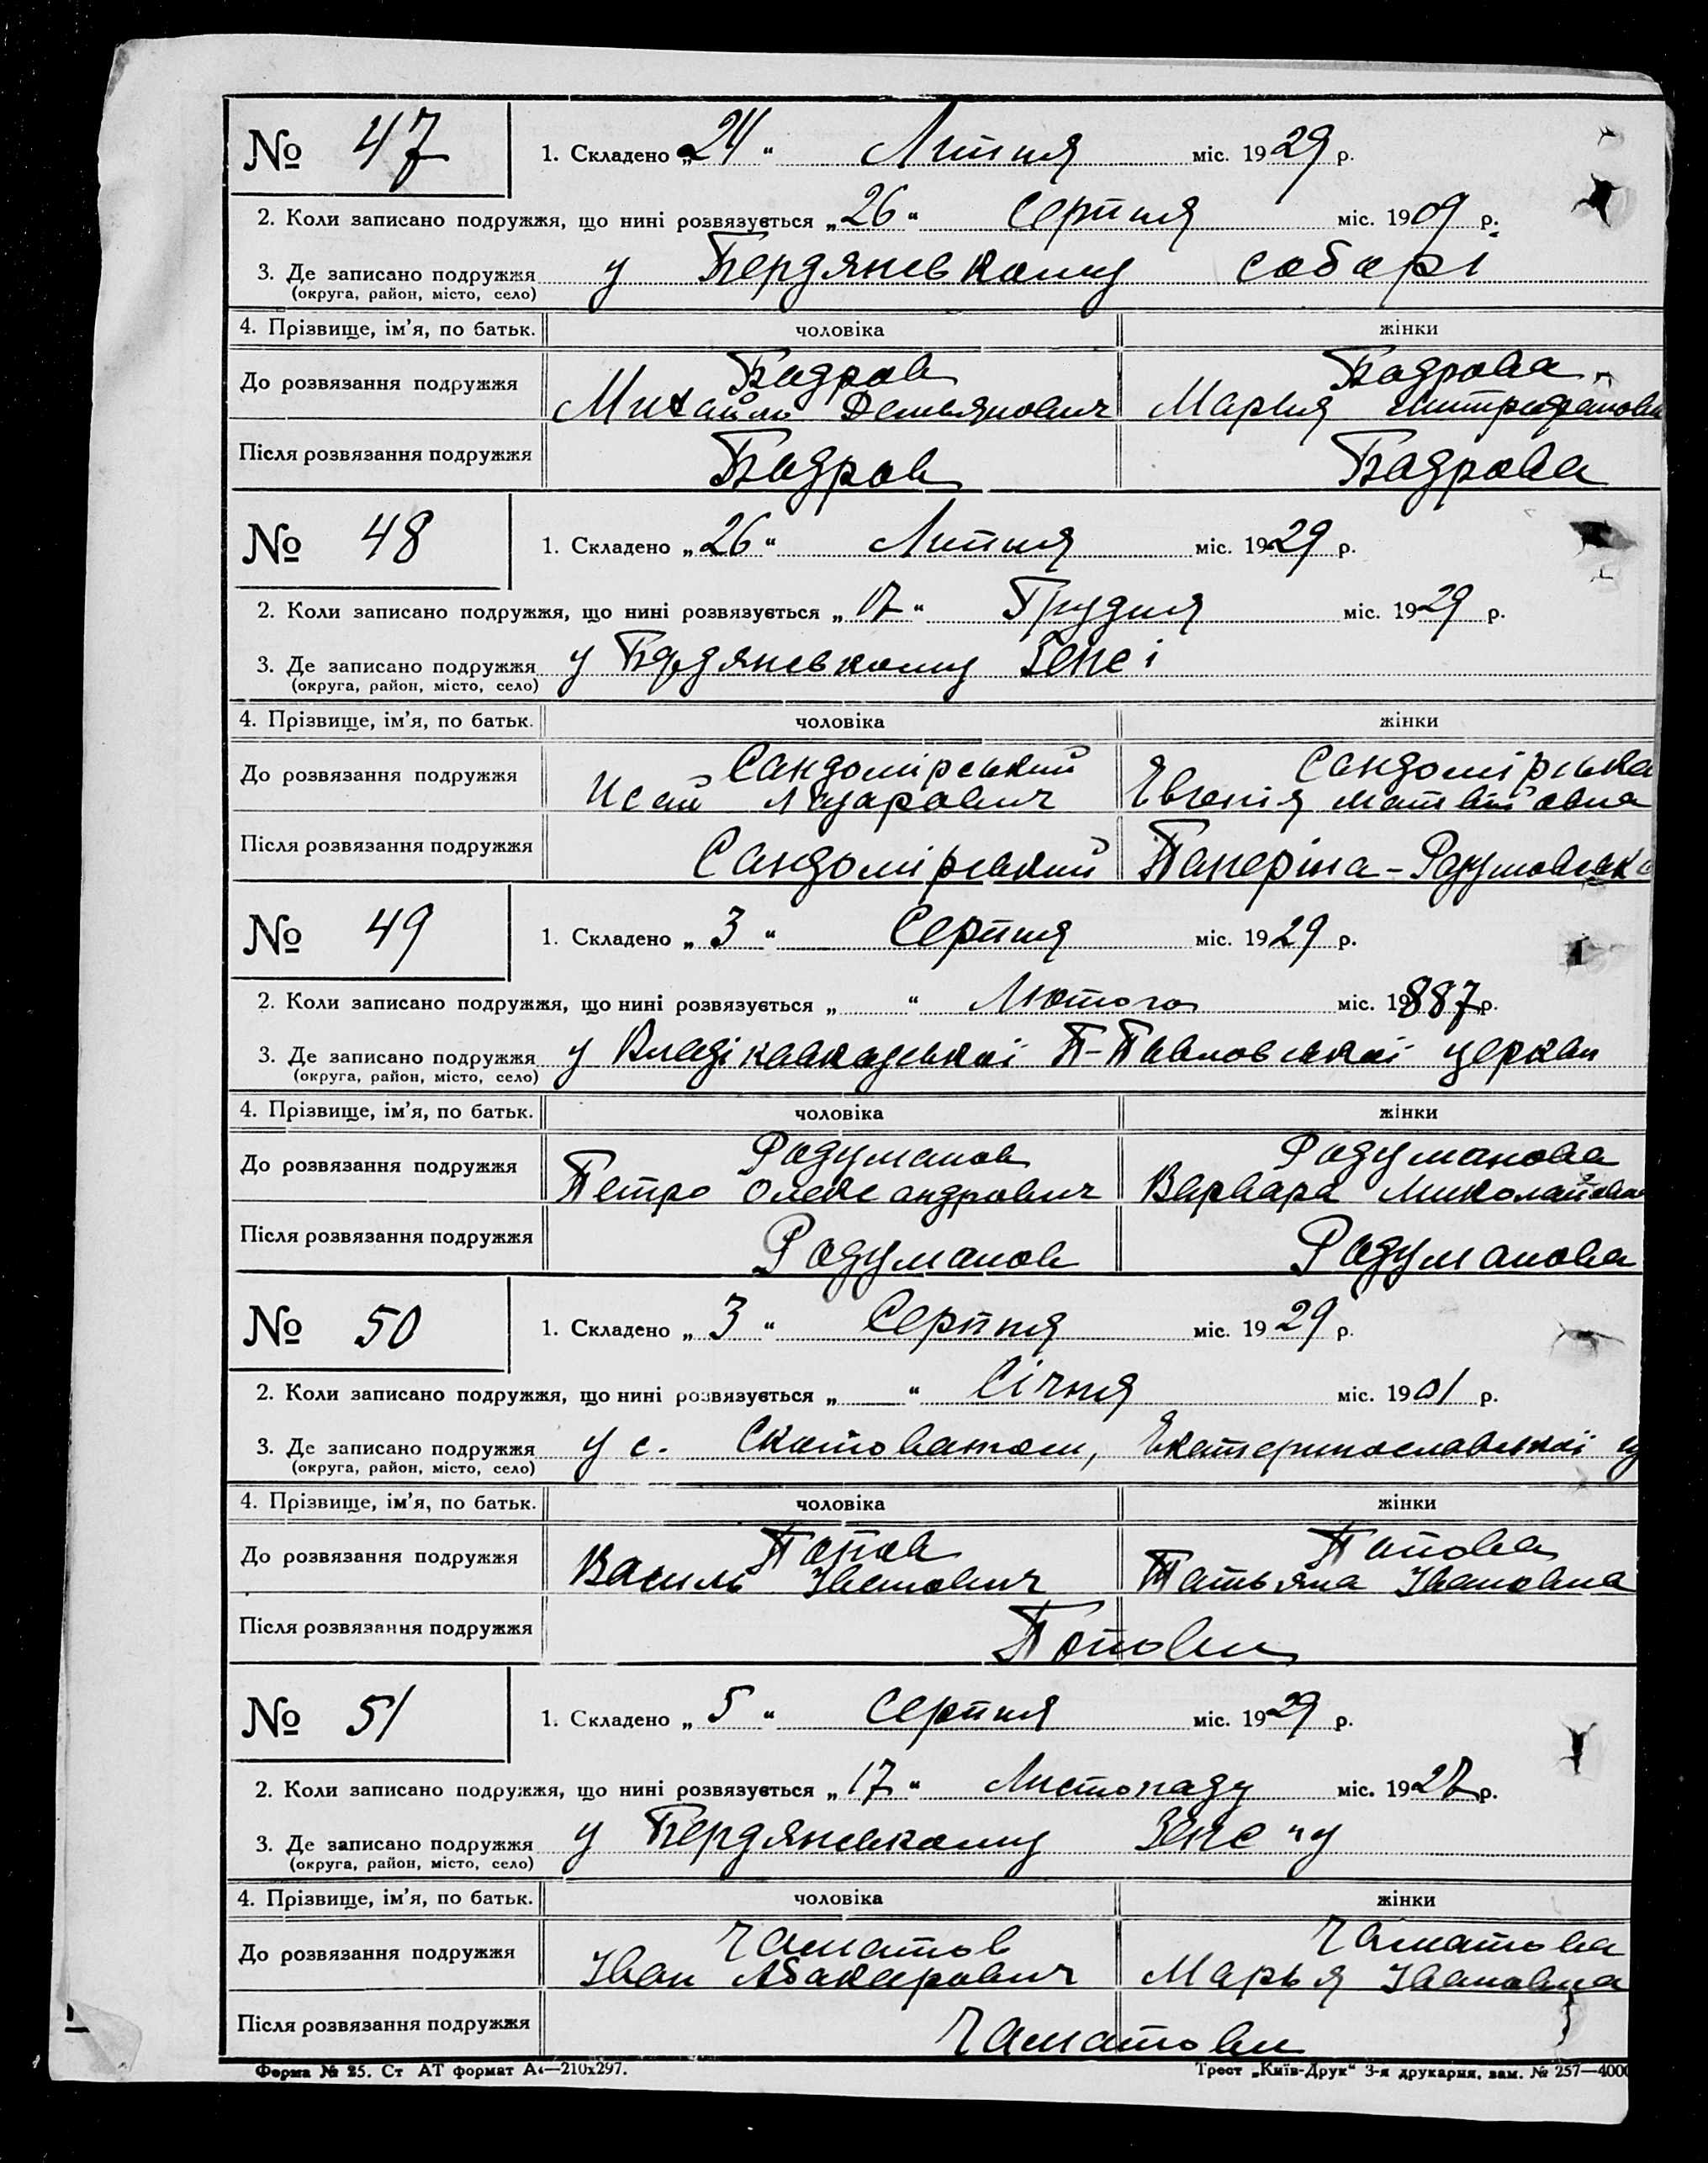 № 47
1. Складено „24“ Липня міс. 1929 р.
2. Коли записано подружжя, що нині розвязується „26“ Серпня міс. 1909 р.
3. Де записано подружжя у Бердянському соборі
(округа, район, місто, село)
4. Прізвище, ім'я, по батьк. чоловіка жінки
Бодров Бодрова
До розвязання подружжя Михайло Демьянович Марья Митрофанов
Після розвязання подружжя Бодров Бодрова
№ 48
1. Складено „26“ Липня міс. 1929 р.
2. Коли записано подружжя, що нині розвязується „17“ Грудня міс. 1929 р.
3. Де записано подружжя у Бердянському Зепсі
(округа, район, місто, село)
4. Прізвище, ім'я, по батьк. чоловіка жінки
Сандомірський Сандомірська
До розвязання подружжя Исай Лазарович Евгенія Матвійовна
Після розвязання подружжя Сандомірський
№ 49
1. Складено „3“ Серпня міс. 1929 р.
2. Коли записано подружжя, що нині розвязується „ “ Лютого міс. 19887р.
3. Де записано подружжя у Владікавказької П-Павловської церкви
(округа, район, місто, село)
4. Прізвище, ім'я, по батьк. чоловіка жінки
Радуманов Радуманова
До розвязання подружжя Петро Олександрович Варвара Миколаївна
Після розвязання подружжя Радуманов Радуманова
№ 50
1. Складено „3“ Серпня міс. 1929 р.
2. Коли записано подружжя, що нині розвязується „ “ Січня міс. 1901 р.
3. Де записано подружжя у с. Екатеринославської
(округа, район, місто, село)
4. Прізвище, ім'я, по батьк. чоловіка жінки
Попов Попова
До розвязання подружжя Василь Іванович Татьяна Івановна
Після розвязання подружжя Попови
№ 51
1. Складено „5“ Серпня міс. 1929 р.
2. Коли записано подружжя, що нині розвязується „17“ Листопаду міс. 1927 р.
3. Де записано подружжя у Бердянському
(округа, район, місто, село)
4. Прізвище, ім'я, по батьк. чоловіка жінки
Чаматов Чаматова
До розвязання подружжя Іван Абакарович Марья Івановна
Після розвязання подружжя Чаматови
Форма № 25. Ст АТ формат А4—210x297. Трест „Київ-Друк“ 3-я друкарня, зам. № 257—4000